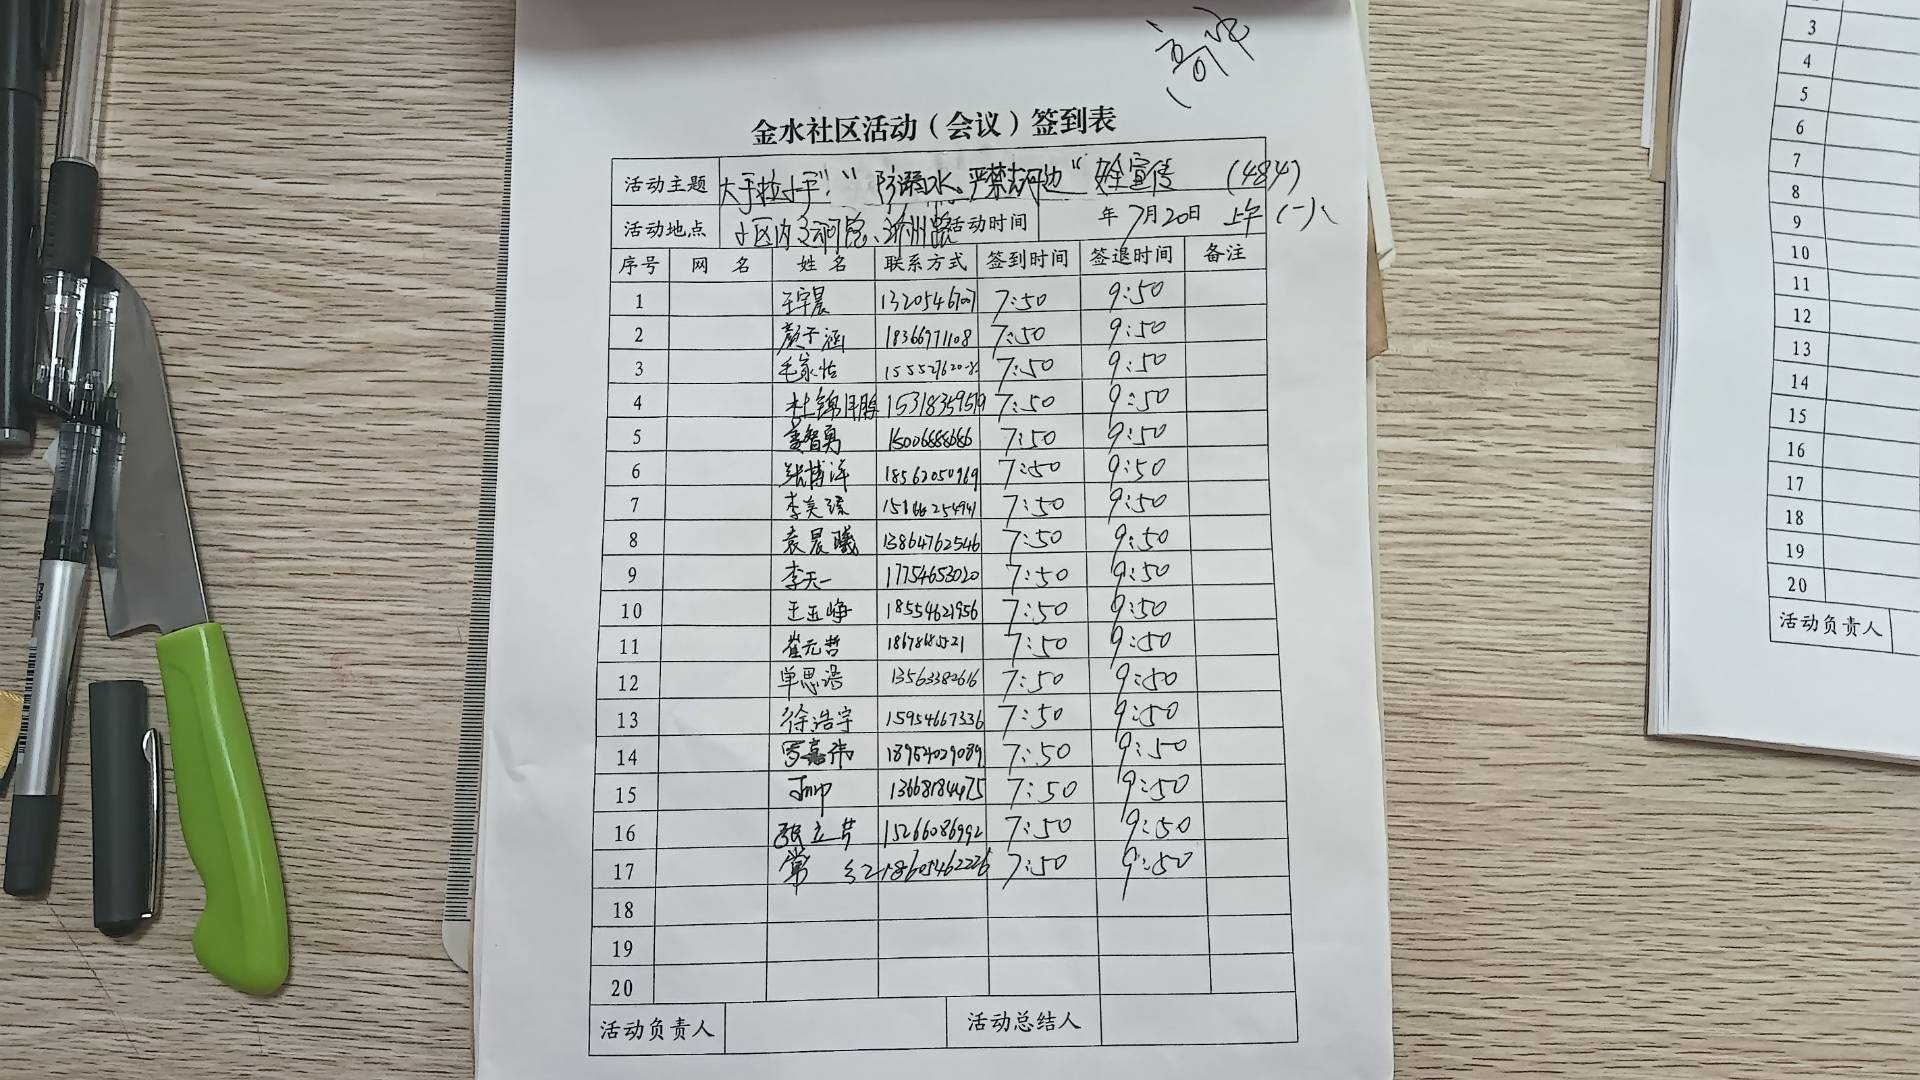 (高中
金水社区活动（会议）签到表
活动主题 大手拉小手"："防溺水、严禁去河边"安全宣传 (484)
活动地点 小区内 活动时间 年 7月20日 上午 (一)
序号 网 名 姓 名 联系方式 签到时间 签退时间 备注
1 王宇晨 7:50 9:50
2 颜子涵 18366971108 7:50 9:50
3 毛家怡 7:50 9:50
4 杜锦 7:50 9:50
5 姜智勇 7:50 9:50
6 张博洋 18562050969 7:50 9:50
7 7:50 9:50
8 袁晨曦 13864762546 7:50 9:50
9 李天一 17754653020 7:50 9:50
10 王玉峥 18554621956 7:50 9:50
11 崔元哲 7:50 9:50
12 单思语 13563382616 7:50 9:50
13 徐浩宇 15954667336 7:50 9:50
14 罗嘉伟 18954029089 7:50 9:50
15 7:50 9:50
16 张立芹 15266086992 7:50 9:50
17 常 红 18605462226 7:50 9:50
18
19
20
活动负责人 活动总结人
3
4
5
6
7
8
9
10
11
12
13
14
15
16
17
18
19
20
活动负责人